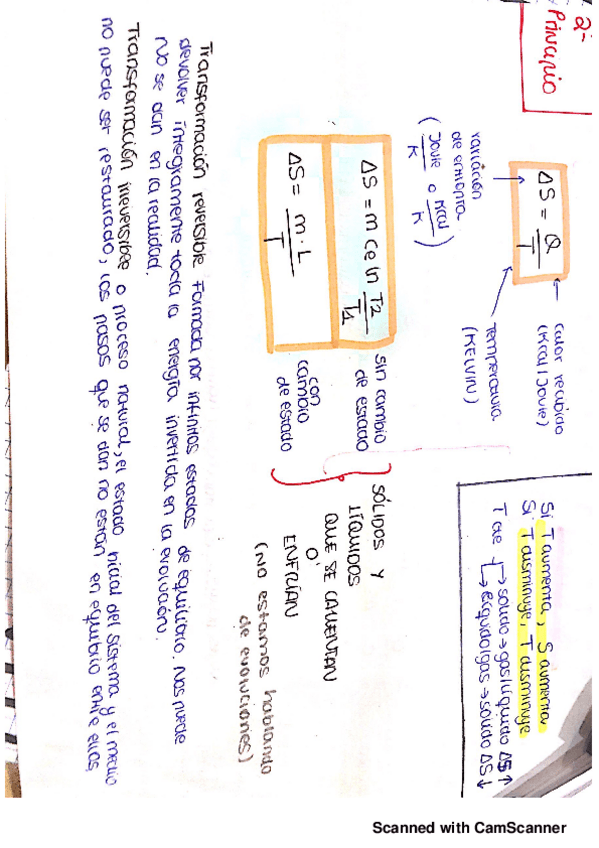 2º
Principio
ΔS = Q/T
calor recibido
(Kcal/Joule)
temperatura
(KELVIN)
variación
de entropía
(Joule/K o Kcal/K)
Si T aumenta, S aumenta
Si T disminuye, T disminuye
T de → sólido → gas/líquido ΔS↑
→ líquido/gas → sólido ΔS↓
ΔS = m Ce ln T2/T1
sin cambio
de estado
ΔS = m·L/T
con
cambio
de estado
SÓLIDOS Y
LÍQUIDOS
QUE SE CALIENTAN
O
ENFRÍAN
(no estamos hablando
de evoluciones)
Transformación reversible Formada por infinitos estados de equilibrio. Nos puede
devolver íntegramente toda la energía invertida en la evolución.
No se dan en la realidad.
Transformación irreversible o proceso natural, el estado inicial del sistema y el medio
no puede ser restaurado, los pasos que se dan no están en equilibrio entre ellos.
Scanned with CamScanner